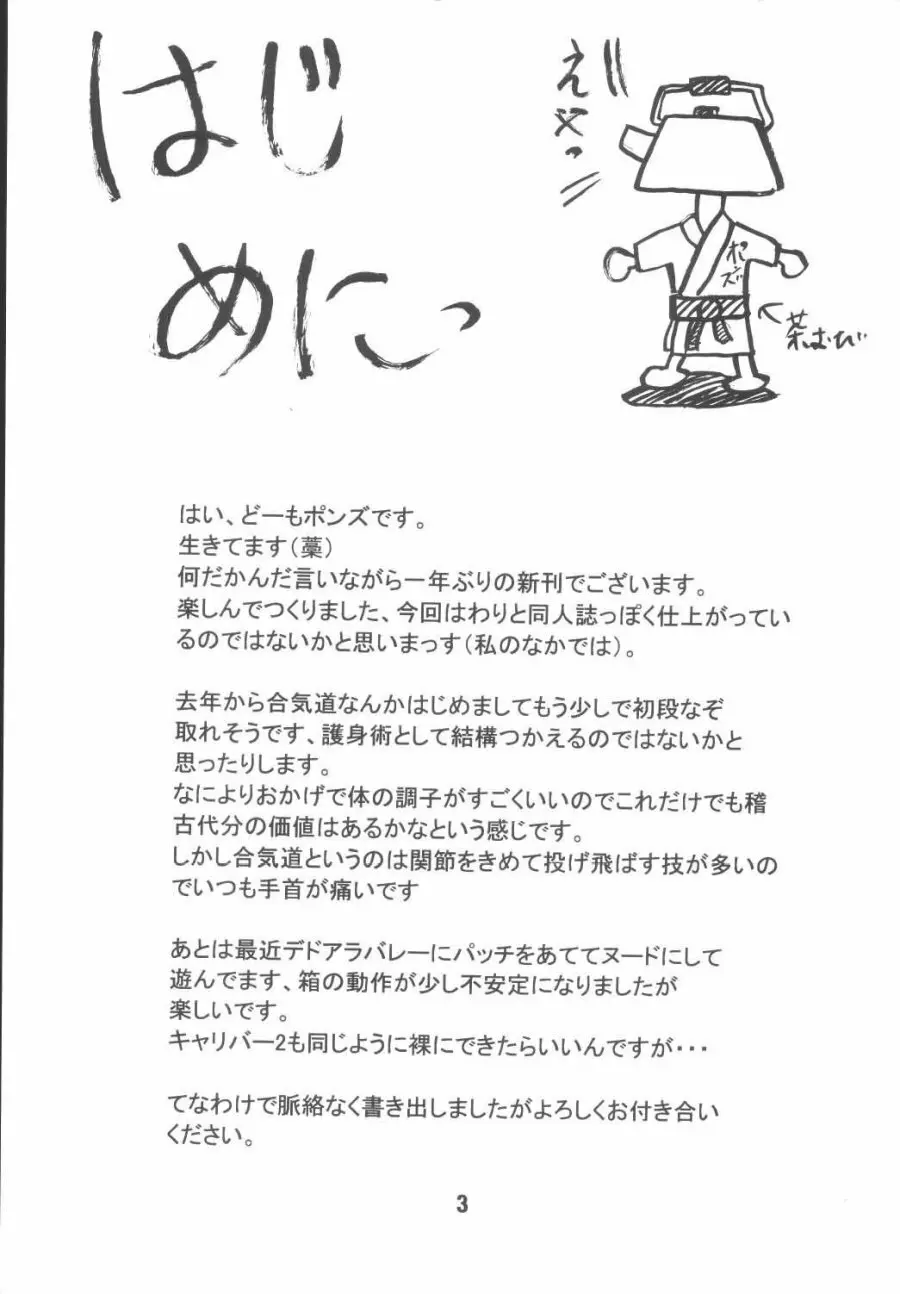 はじ
めにっ
えいやっ
ポンズ
茶おび
はい、どーもポンズです。
生きてます（藁）
何だかんだ言いながら一年ぶりの新刊でございます。
楽しんでつくりました、今回はわりと同人誌っぽく仕上がってい
るのではないかと思いまっす（私のなかでは）。
去年から合気道なんかはじめましてもう少しで初段なぞ
取れそうです、護身術として結構つかえるのではないかと
思ったりします。
なによりおかげで体の調子がすごくいいのでこれだけでも稽
古代分の価値はあるかなという感じです。
しかし合気道というのは関節をきめて投げ飛ばす技が多いの
でいつも手首が痛いです
あとは最近デドアラバレーにパッチをあててヌードにして
遊んでます、箱の動作が少し不安定になりましたが
楽しいです。
キャリバー2も同じように裸にできたらいいんですが・・・
てなわけで脈絡なく書き出しましたがよろしくお付き合い
ください。
3